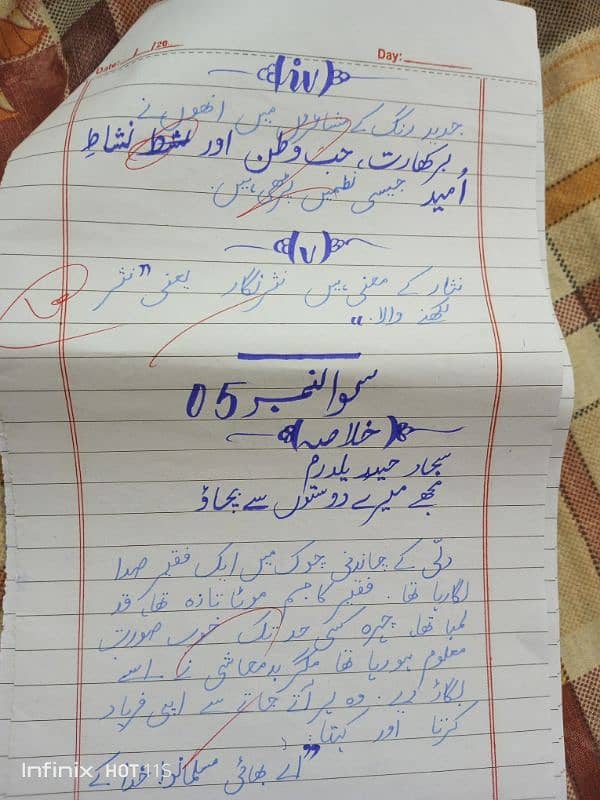 Date: / /20
Day:
(iv)
جدید رنگ کے مشاعروں میں انھوں نے
برکھارت، حب وطن اور نشاطِ
اُمید جیسی نظمیں پڑھی ہیں.
(v)
نثار کے معنی ہیں نثر نگار یعنی "نثر
لکھنے والا."
سوالنمبر 05
(خلاصہ)
سجاد حیدر یلدرم
مجھے میرے دوستوں سے بچاؤ
دلّی کے چاندنی چوک میں ایک فقیر صدا
لگا رہا تھا. فقیر کا جسم موٹا تازہ تھا، قد
لمبا تھا. چہرہ کسی حد تک خوب صورت
معلوم ہو رہا تھا مگر بدمعاشی نے اسے
بگاڑ دیا. وہ ہر آنے جانے سے اپنی فریاد
کرتا اور کہتا:
"اے بھائی مسلمانو! خدا کے
Infinix HOT 11S